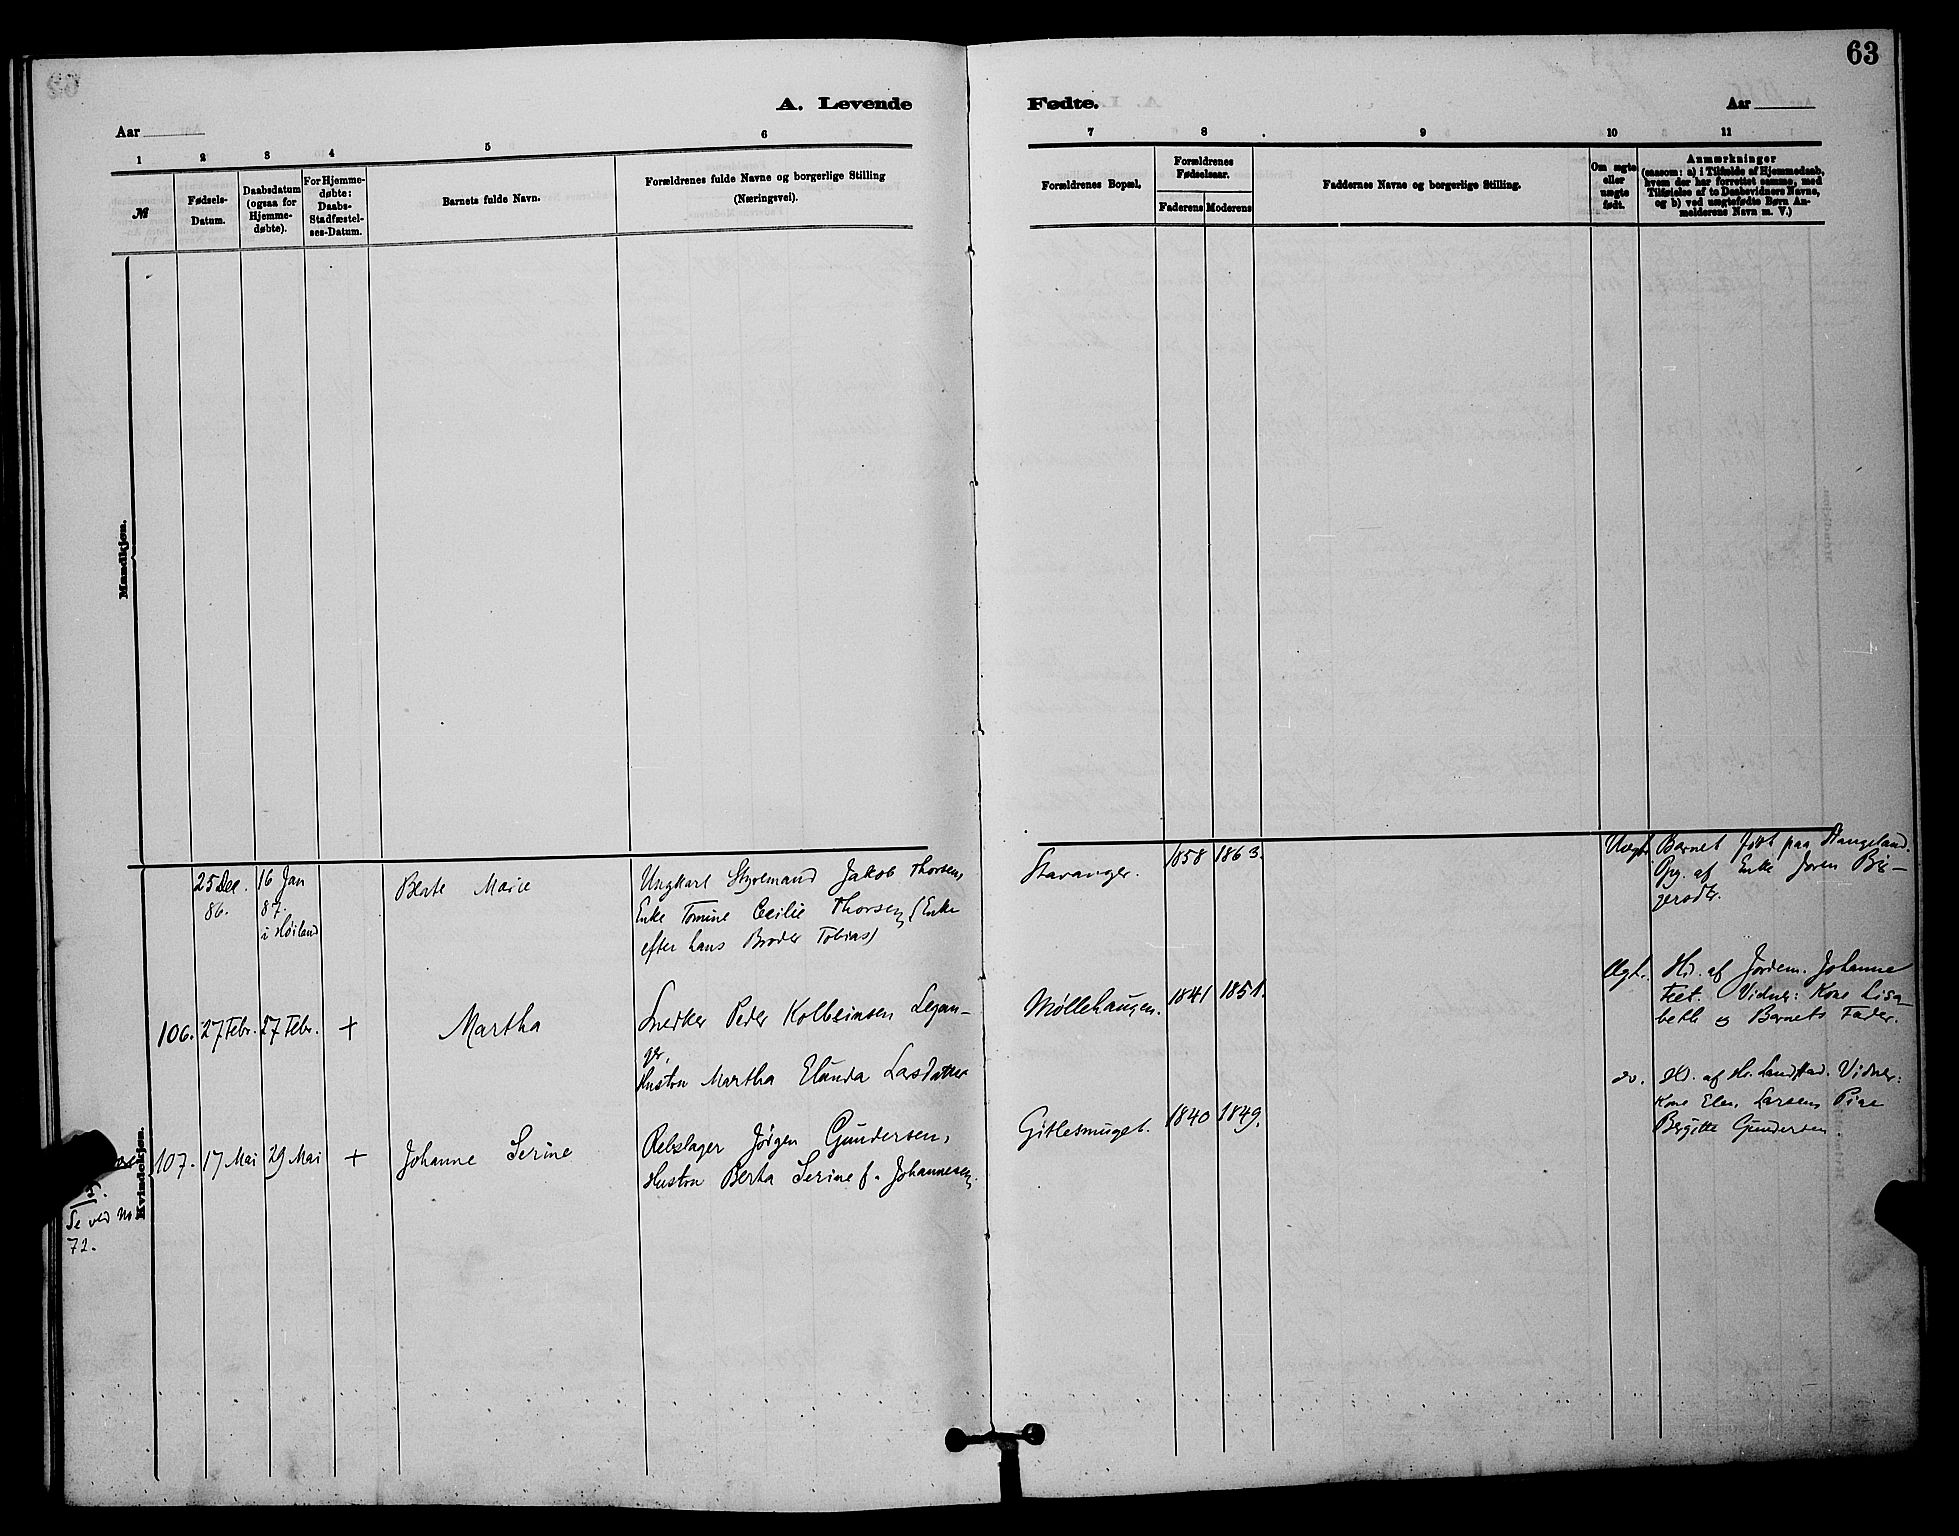 63
A. Levende
Fødte.
Aar
Aar
1 2 3 4 5 6
7 8 9 10 11
№
Fødsels-
Datum.
Daabsdatum
(ogsaa for
Hjemme-
døbte).
For Hjemme-
døbte:
Daabs-
Stadfæstel-
ses-Datum.
Barnets fulde Navn.
Forældrenes fulde Navne og borgerlige Stilling
(Næringsvei).
Forældrenes Bopæl.
Forældrenes
Fødselsaar.
Faderens Moderens
Faddernes Navne og borgerlige Stilling.
Om ægte
eller
uægte
født.
Anmærkninger
(saasom: a) i Tilfælde af Hjemmedaab,
hvem der har forrettet samme, med
Tilføielse af to Daabsvidners Navne,
og b) ved uægtefødte Børn An-
melderens Navn m. V.)
Mandkjøn.
Kvindekjøn.
25 Dec.
86.
16 Jan
87.
i Høiland
Berte Marie
Ungkarl Styrmand Jakob Thorsen,
Enke Tomine Cecilie Thorsen (Enke
efter hans Broder Tobias)
Stavanger.
1858 1863.
Uægt.
Barnet født paa Stangeland.
Opg. af Enke Joren Bir-
gersdtr.
106. 27 Febr. 27 Febr. +
Martha
Snedker Peder Kolbeinsen Legan-
ger,
Hustru Martha Elunda Larsdatter
Møllehaugen.
1841 1851.
Ægt.
Hd. af Jordem. Johanne
Teet. Vidner: Kone Lisa-
beth og Barnets Fader.
107. 17 Mai 29 Mai +
Johanne Serine
Rebslager Jørgen Gundersen,
Hustru Berta Serine f. Johannesen
Gitlesmuget.
1840 1849.
do.
Hd. af Hr. Landstad. Vidner:
Kone Elen Larsen, Pige
Bergitte Gundersen.
Se ved No
72.